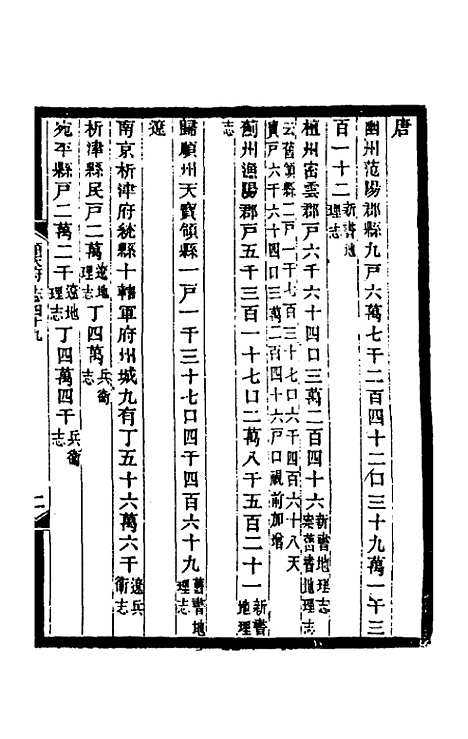 唐
幽州范陽郡縣九戶六萬七千二百四十二口三十九萬一千三
百一十二新書地理志
檀州密雲郡戶六千六十四口三萬二百四十六新書地理志案舊書地理志
云舊領縣二戶一千七百三十七口六千四百六十八天寶戶六千六十四口三萬二百四十六戶口視前加增
薊州漁陽郡戶五千三百一十七口二萬八千五百二十一新書地理
志
歸順州天寶領縣一戶一千三十七口四千四百六十九舊書地理志
遼
南京析津府統縣十轄軍府州城九有丁五十六萬六千遼兵衛志
析津縣民戶二萬遼地理志丁四萬兵衛志
宛平縣戶二萬二千遼地理志丁四萬四千兵衛志
順天府志四十九
二